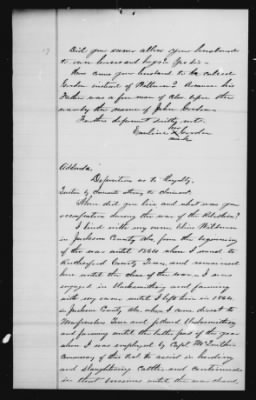 Did your owner allow your husband
to own horses and hogs? Yes sir -
How came your husband to be called
Gordon instead of Wilburn? Because his
Father was a free man of color upon the
was by the name of John Gordon
Further deponent saith not.
her
Caroline X Gordon
mark
Addenda.
Deposition as to Loyalty,
Question by Claimants Attorney to Claimant.
Where did you live and what was your
occupation during the war of the Rebellion?
I lived with my owner Wilburn
in Jackson County Ala from the beginning
of the war until 1864 when I moved to
Rutherford County Tenn, and remained
here until the close of the war. I was
engaged in blacksmithing and farming
with my owner until I left him in 1864.
in Jackson County Ala when I came direct to
Murfreesboro Tenn and followed blacksmithing
and farming until the latter part of the year
when I was employed by Capt
Commissary of this Post to assist in herding
and slaughtering Cattle and continued
in that business until the war closed